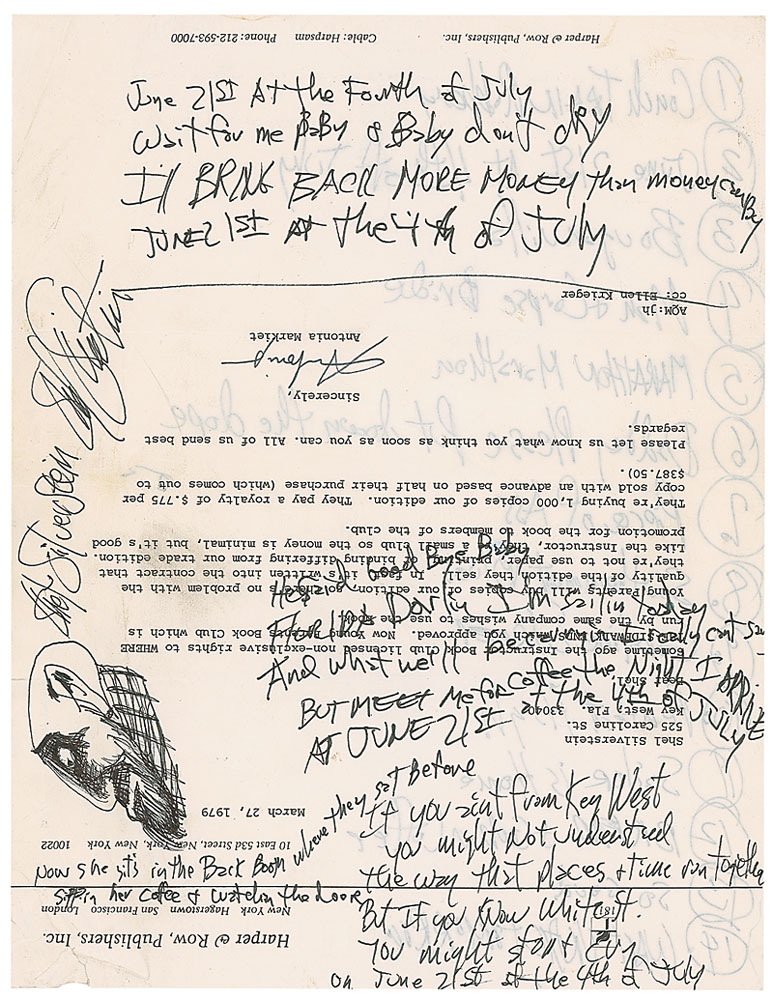 June 21ST At the Fourth of July
Wait for me Baby & Baby don't dry
I'll BRING BACK MORE MONEY than money can By
JUNE 21ST At the 4th of JULY
Shel Silverstein
Good Bye Baby
Darlin I'm sailin today
And what we'll
But MEET Me for coffee the Night I ARRIVE
AT JUNE 21ST the 4th of JULY
If you aint from Key West
you might Not understand
the way that places & time run together
But If you know White St.
You might start & Cry
on June 21st at the 4th of July
Now she sits in the Back Booth where they sat Before
sippin her coffee & watchin the doore
Harper & Row, Publishers, Inc.
New York Hagerstown San Francisco London
1817
10 East 53d Street, New York, New York 10022
March 27, 1979
Shel Silverstein
525 Caroline St.
Key West, Fla. 33040
Dear Shel
Sometime ago the Instructor Book Club licensed non-exclusive rights to WHERE
THE SIDEWALK ENDS, which you approved. Now Young Parents Book Club which is
run by the same company wishes to use the book.
Young Parents will buy copies of our edition, so there's no problem with the
quality of the edition they sell. In fact it's written into the contract that
they're not to use paper, printing binding differing from our trade edition.
Like the Instructor, they're a small club so the money is minimal, but it's good
promotion for the book to members of the club.
They're buying 1,000 copies of our edition. They pay a royalty of $.775 per
copy sold with an advance based on half their purchase (which comes out to
$387.50).
Please let us know what you think as soon as you can. All of us send best
regards.
Sincerely,
Antonia
Antonia Markiet
AQM:jh
cc: Ellen Krieger
Harper & Row, Publishers, Inc. Cable: Harpsam Phone: 212-593-7000